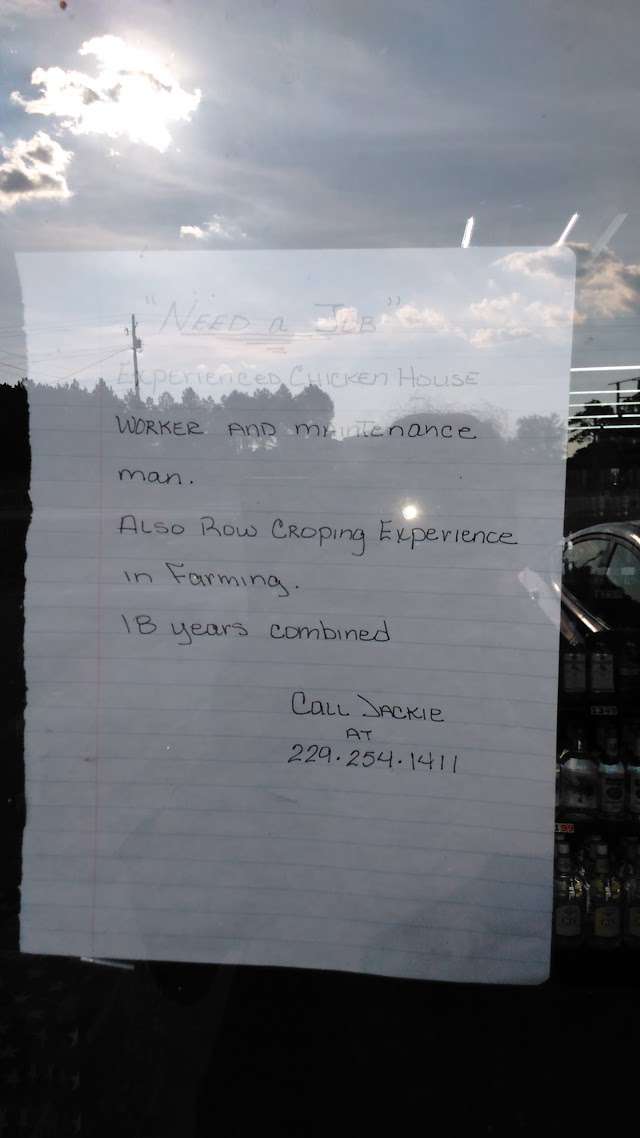 "NEED a JOB"
Experienced Chicken House
WORKER AND maintenance
man.
Also Row Croping Experience
in Farming.
18 years combined
Call Jackie
AT
229.254.1411